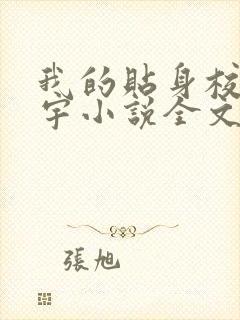 我的貼身校
宇小說全文
張旭